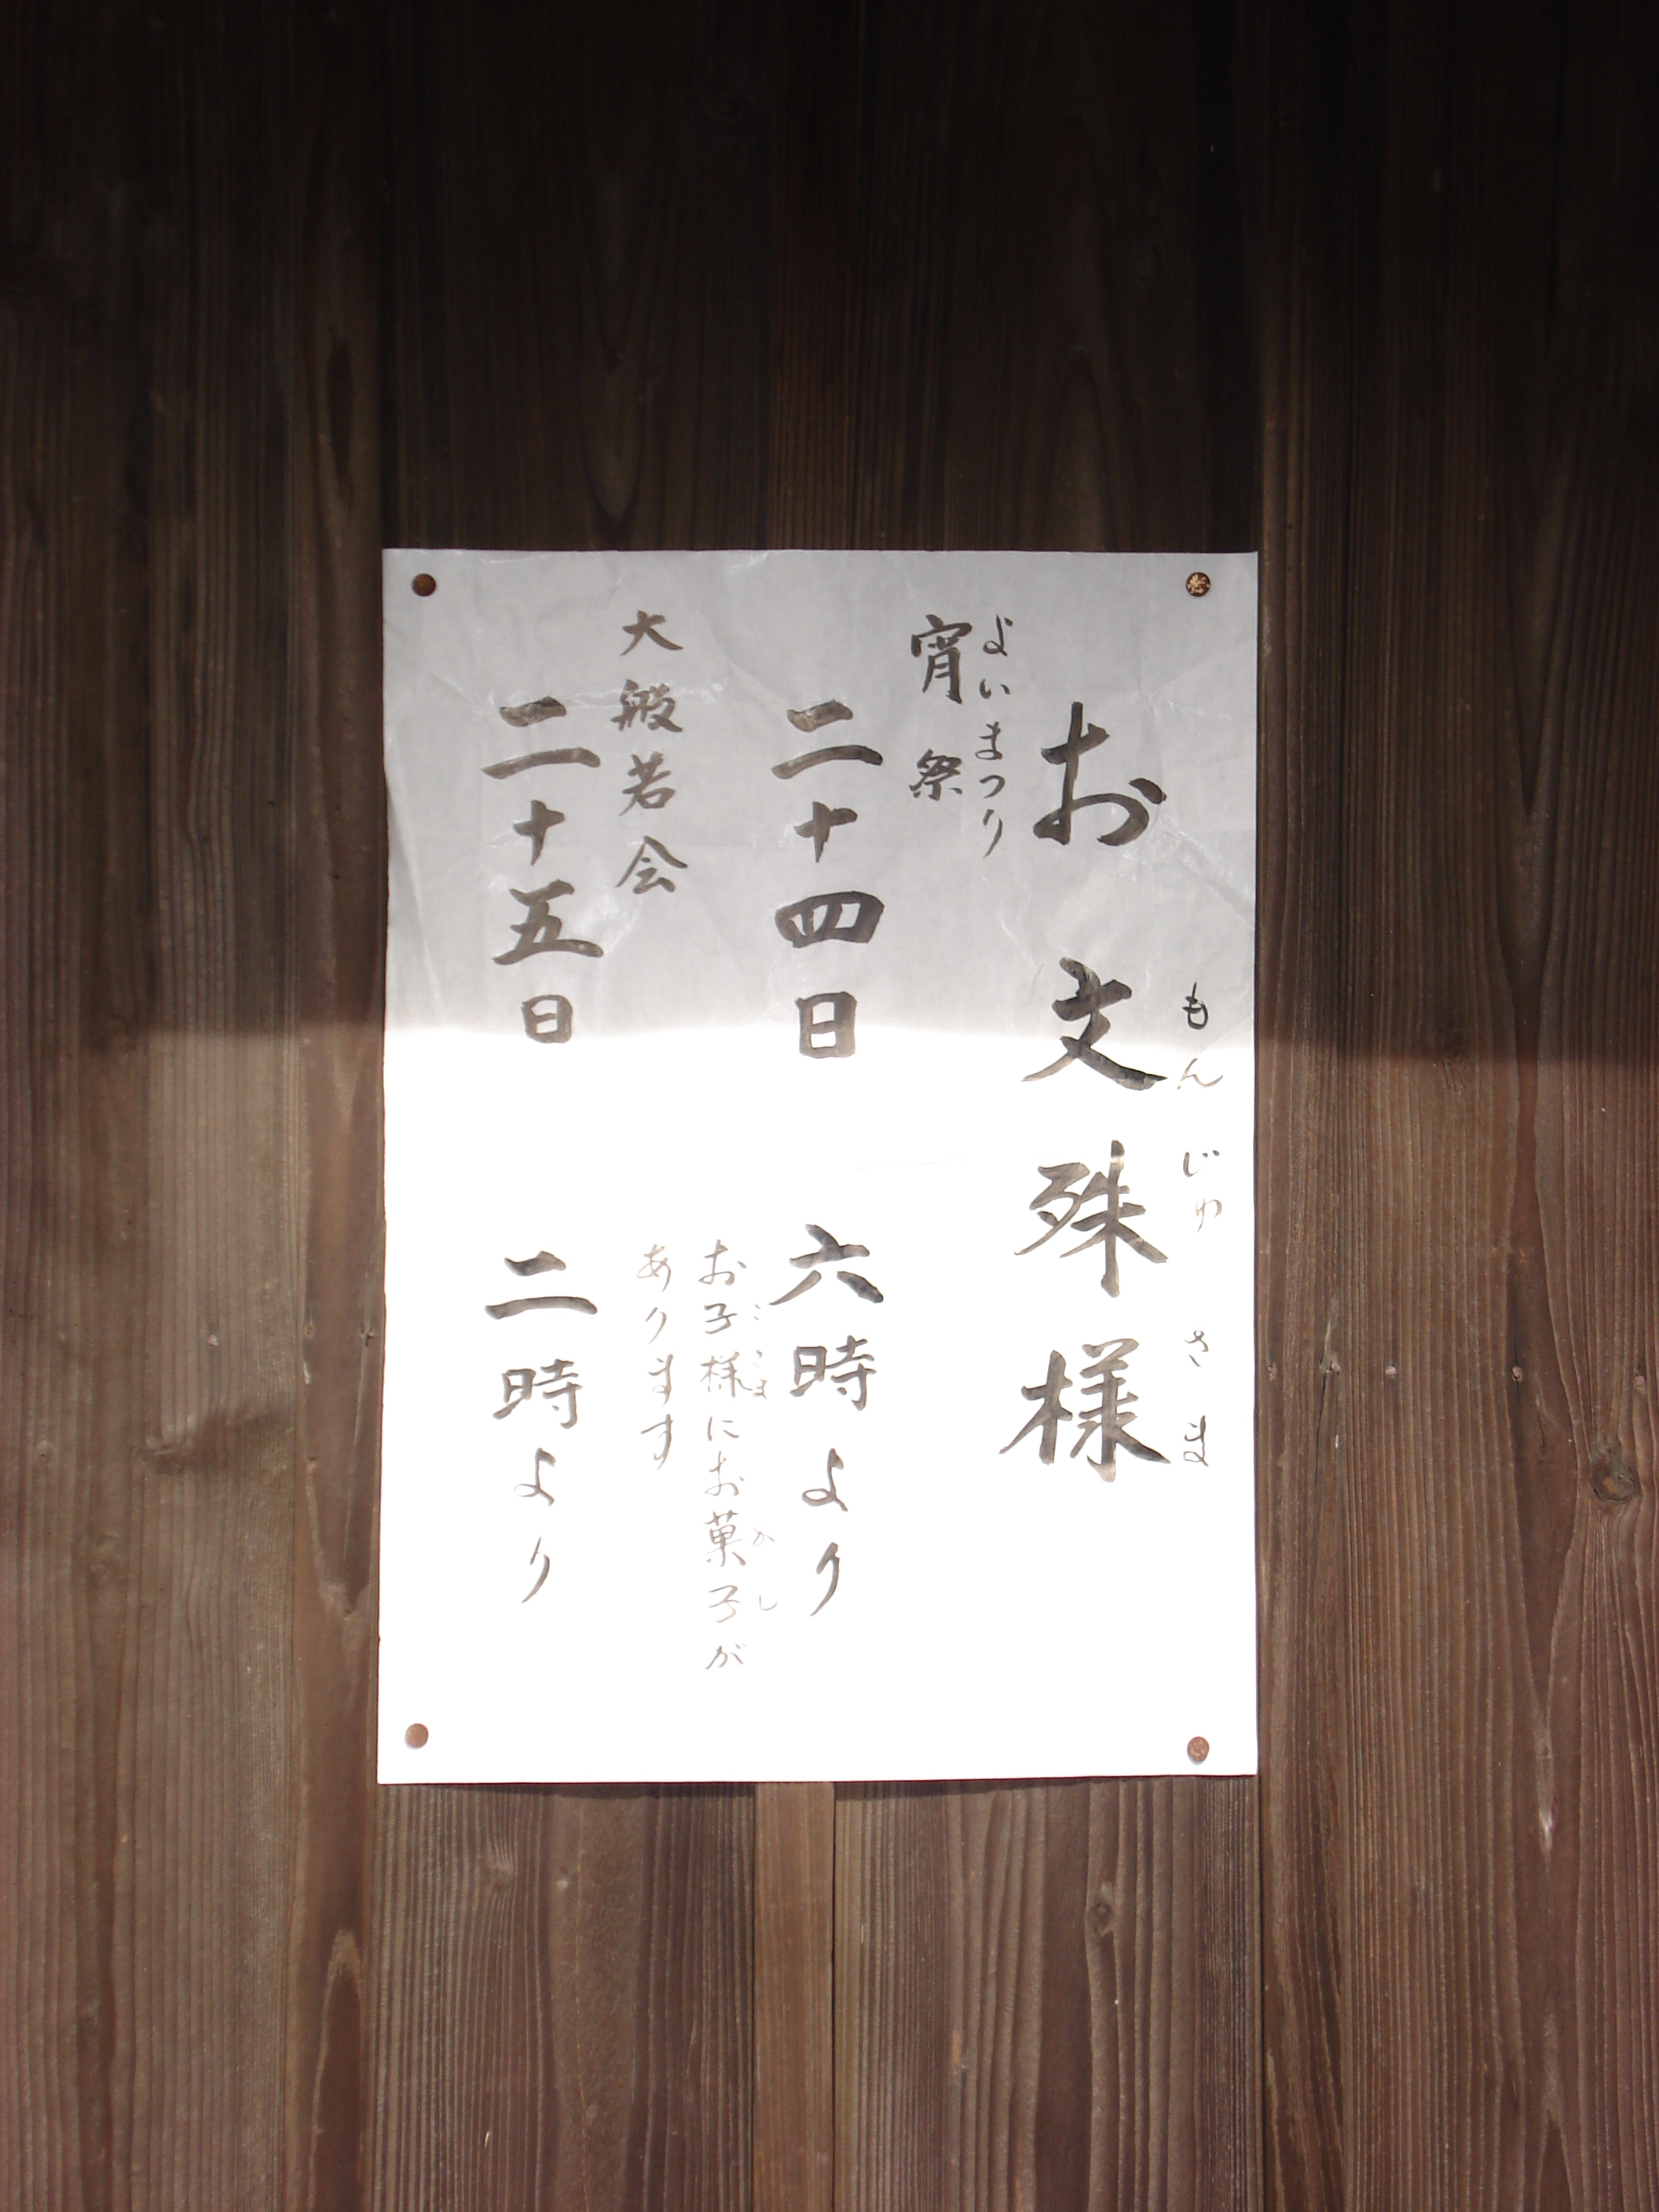 お文殊様
もんじゅさま
宵祭
よいまつり
二十四日 六時より
お子様にお菓子が
こさま かし
あります
大般若会
二十五日 二時より